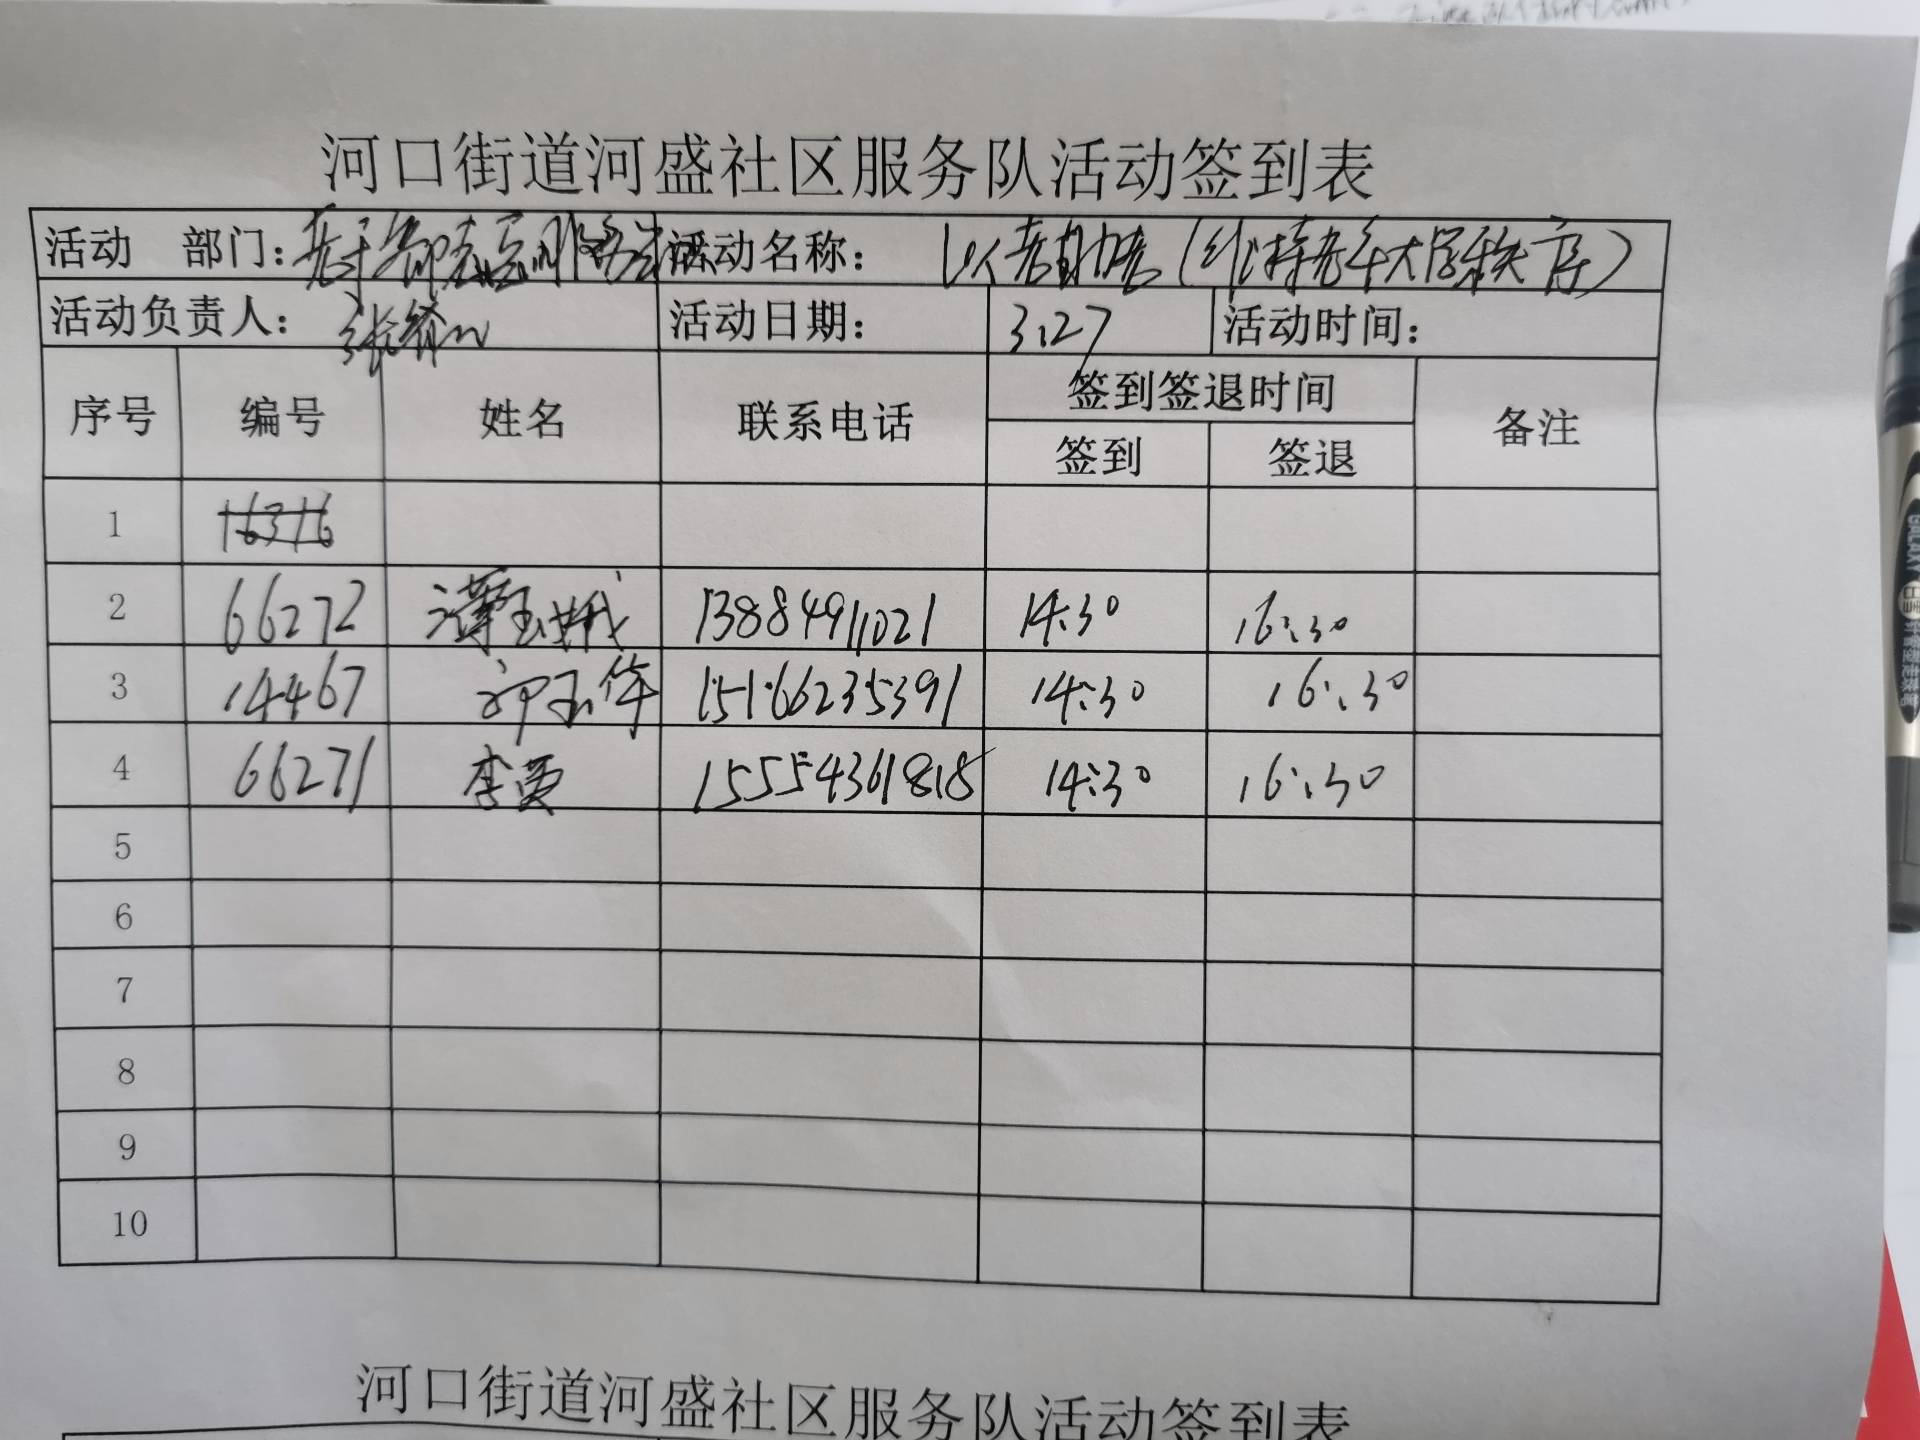 河口街道河盛社区服务队活动签到表
活动 部门： 活动名称： 以老助老（维持老年大学秩序）
活动负责人： 活动日期： 3.27 活动时间：
序号 编号 姓名 联系电话 签到签退时间 备注
签到 签退
1 16316
2 66272 谭玉娥 13884911021 14:30 16:30
3 14467 玉华 15166235391 14:30 16:30
4 66271 李 15554361818 14:30 16:30
5
6
7
8
9
10
河口街道河盛社区服务队活动签到表
GALAXY